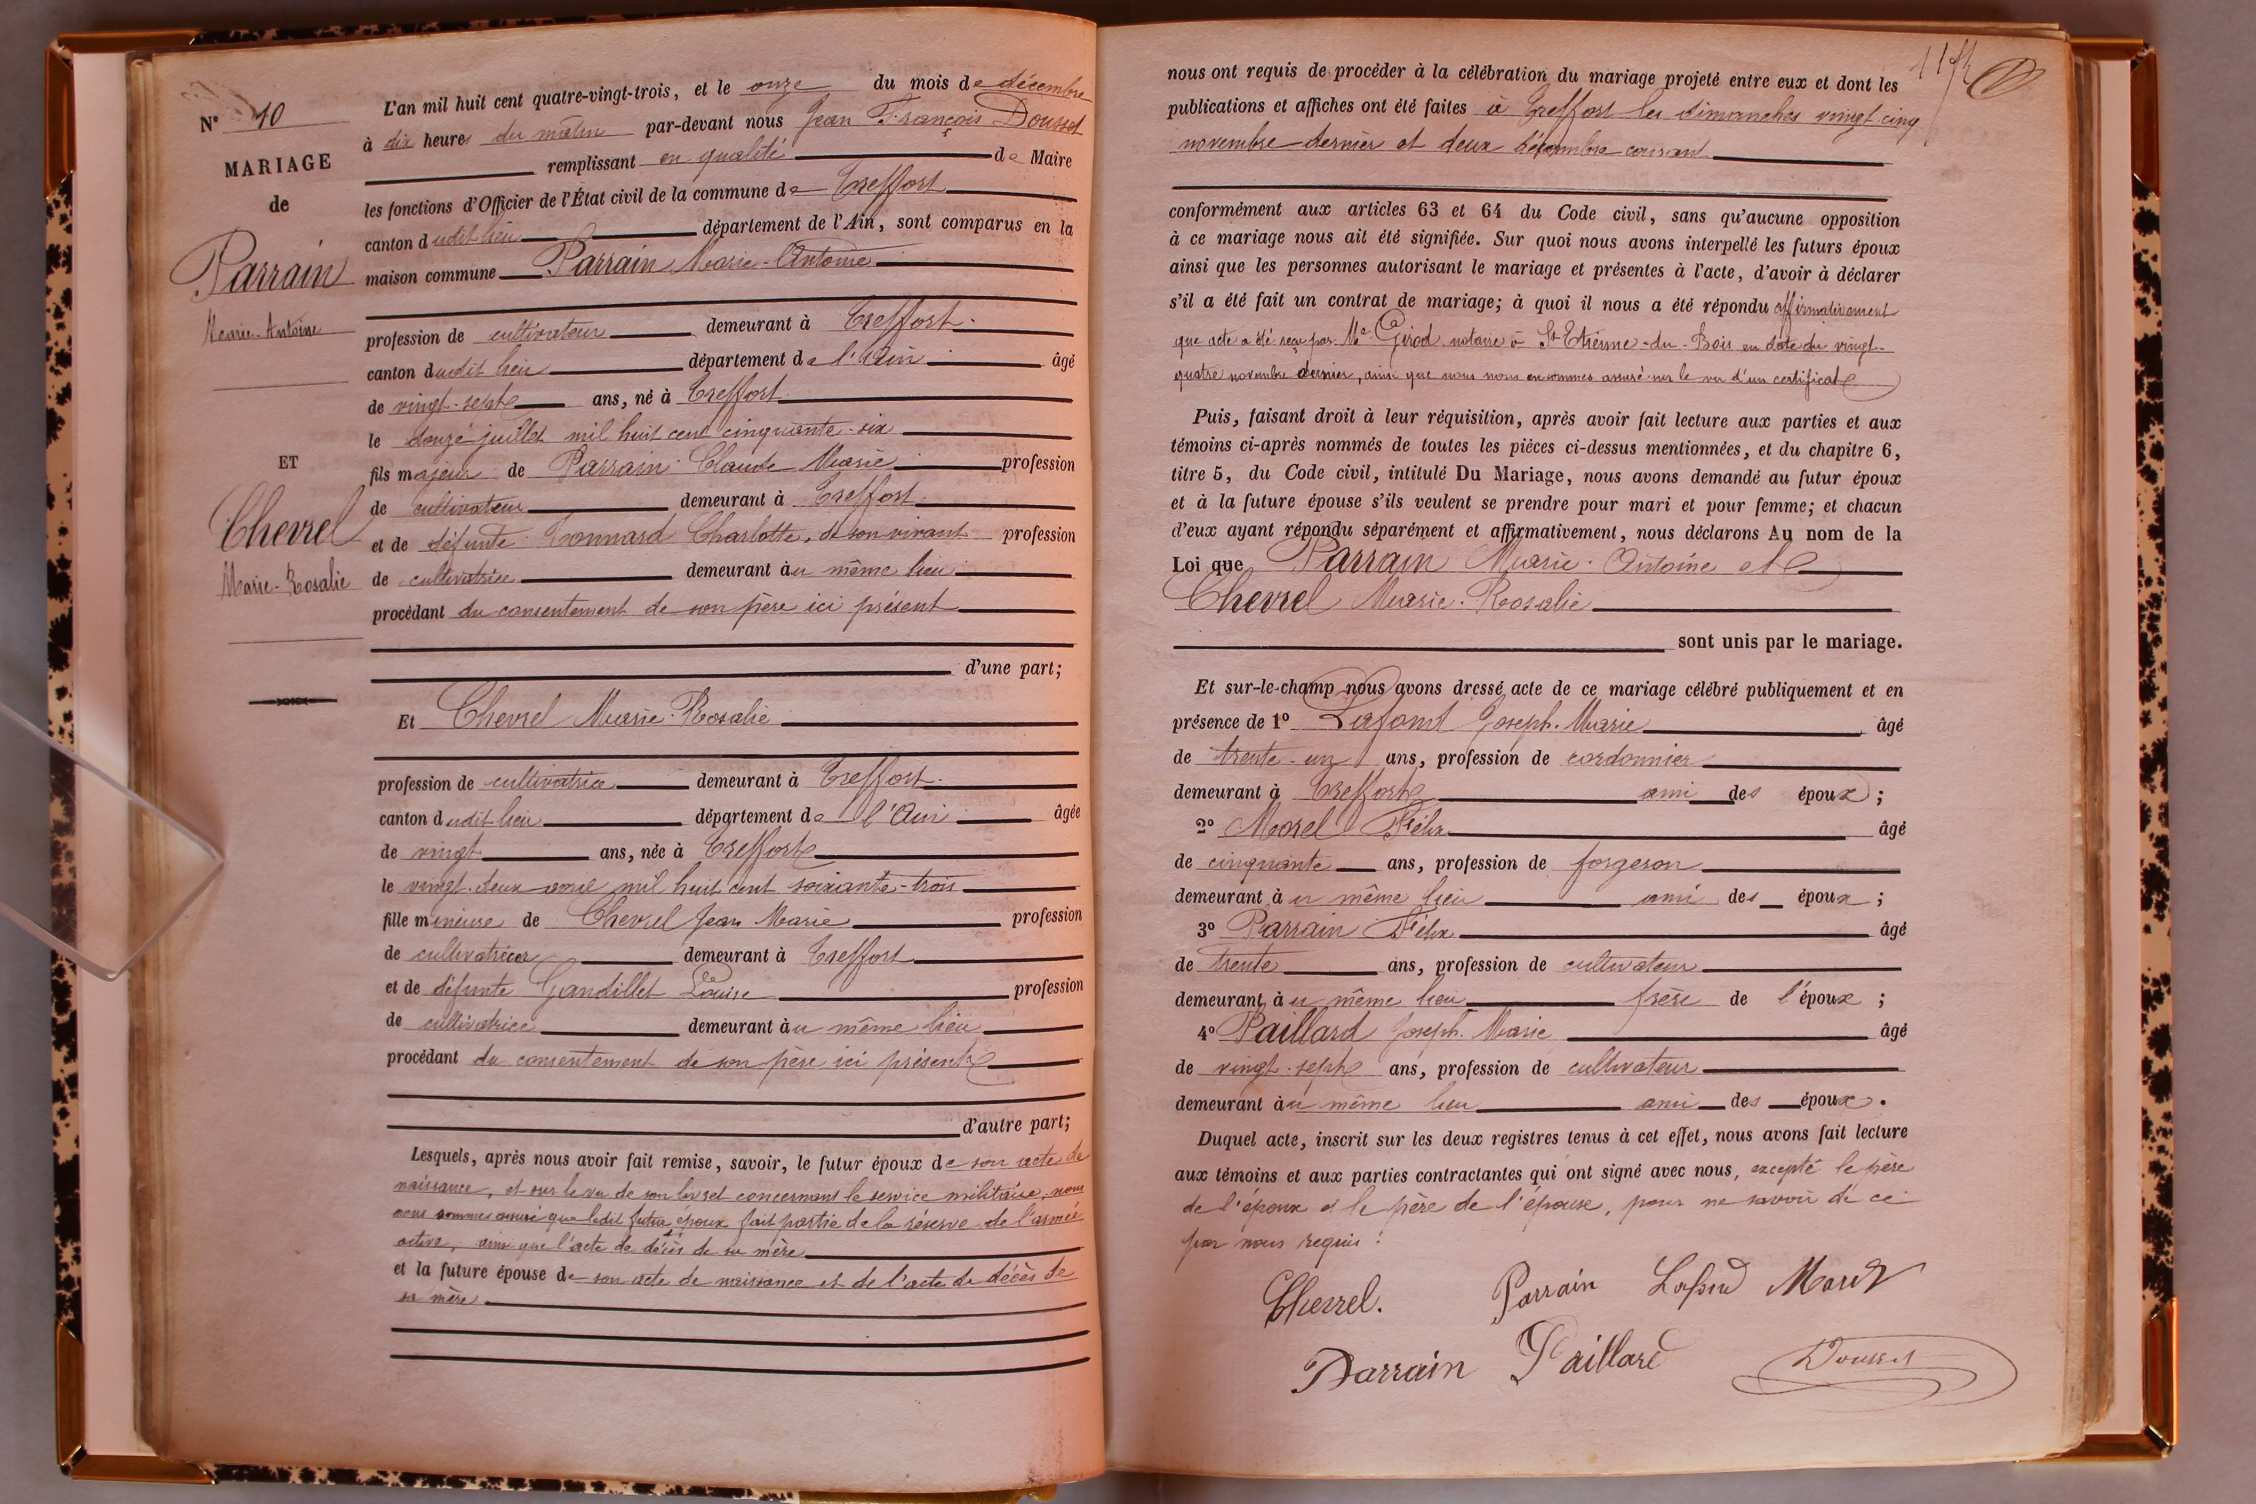 N° 10
MARIAGE
de
Parrain
Marie-Antoine
ET
Chevrel
Marie-Rosalie
L'an mil huit cent quatre-vingt-trois, et le onze du mois de décembre
à dix heures du matin par-devant nous Jean François Dousset
remplissant en qualité de Maire
les fonctions d'Officier de l'État civil de la commune de Treffort
canton dudit lieu département de l'Ain, sont comparus en la
maison commune Parrain Marie-Antoine
profession de cultivateur demeurant à Treffort.
canton dudit lieu département de l'Ain âgé
de vingt-sept ans, né à Treffort
le douze juillet mil huit cent cinquante-six
fils majeur de Parrain Claude Marie profession
de cultivateur demeurant à Treffort
et de défunte Tonnard Charlotte, de son vivant profession
de cultivatrice demeurant au même lieu
procédant du consentement de son père ici présent
d'une part;
Et Chevrel Marie-Rosalie
profession de cultivatrice demeurant à Treffort.
canton dudit lieu département de l'Ain âgée
de vingt ans, née à Treffort
le vingt-deux avril mil huit cent soixante-trois
fille mineure de Chevrel Jean Marie profession
de demeurant à Treffort
et de défunte Gandillet Louise profession
de cultivatrice demeurant au même lieu
procédant du consentement de son père ici présent
d'autre part;
Lesquels, après nous avoir fait remise, savoir, le futur époux de son acte de
naissance, et sur le vu de son livret concernant le service militaire, nous
nous sommes assuré que ledit futur époux fait partie de la réserve de l'armée
active, ainsi que l'acte de décès de sa mère
et la future épouse de son acte de naissance et de l'acte de décès de
sa mère
nous ont requis de procéder à la célébration du mariage projeté entre eux et dont les
publications et affiches ont été faites à Treffort les dimanches vingt cinq
novembre dernier et deux décembre courant
conformément aux articles 63 et 64 du Code civil, sans qu'aucune opposition
à ce mariage nous ait été signifiée. Sur quoi nous avons interpellé les futurs époux
ainsi que les personnes autorisant le mariage et présentes à l'acte, d'avoir à déclarer
s'il a été fait un contrat de mariage; à quoi il nous a été répondu affirmativement
que acte a été reçu par Me Girod notaire à St Etienne-du-Bois en date du vingt-
quatre novembre dernier, ainsi que nous nous en sommes assuré sur le vu d'un certificat
Puis, faisant droit à leur réquisition, après avoir fait lecture aux parties et aux
témoins ci-après nommés de toutes les pièces ci-dessus mentionnées, et du chapitre 6,
titre 5, du Code civil, intitulé Du Mariage, nous avons demandé au futur époux
et à la future épouse s'ils veulent se prendre pour mari et pour femme; et chacun
d'eux ayant répondu séparément et affirmativement, nous déclarons Au nom de la
Loi que Parrain Marie-Antoine et
Chevrel Marie-Rosalie
sont unis par le mariage.
Et sur-le-champ nous avons dressé acte de ce mariage célébré publiquement et en
présence de 1° Lafont Joseph-Marie âgé
de trente-un ans, profession de cordonnier
demeurant à Treffort ami des époux;
2° Morel Félix âgé
de cinquante ans, profession de forgeron
demeurant au même lieu ami des époux;
3° Parrain Félix âgé
de trente ans, profession de cultivateur
demeurant au même lieu frère de l'époux;
4° Paillard Joseph-Marie âgé
de vingt-sept ans, profession de cultivateur
demeurant au même lieu ami des époux.
Duquel acte, inscrit sur les deux registres tenus à cet effet, nous avons fait lecture
aux témoins et aux parties contractantes qui ont signé avec nous, excepté le père
de l'époux et le père de l'épouse, pour ne savoir de ce
par nous requis.
Chevrel. Parrain Lafond Morel
Parrain Paillard Dousset